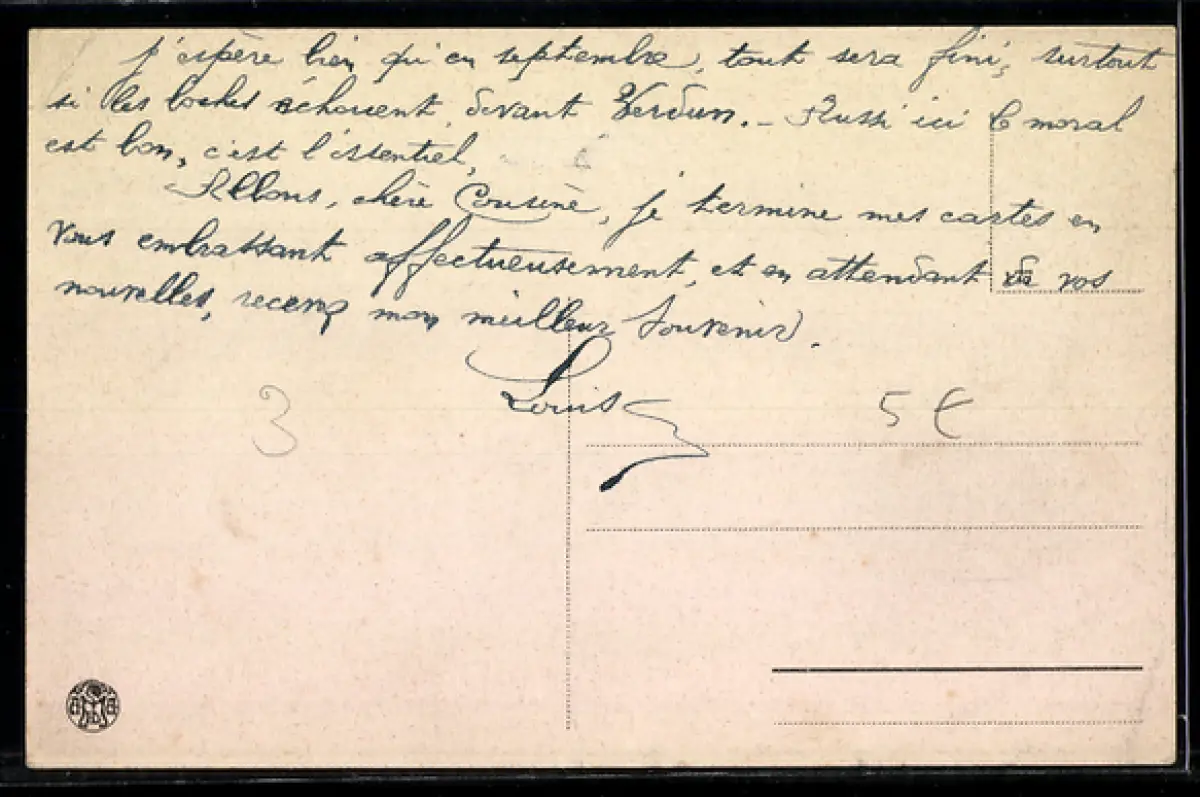 j'espère bien qu'en septembre, tout sera fini, surtout
si les boches échouent devant Verdun. – Aussi ici le moral
est bon, c'est l'essentiel.
Allons, chère Cousine, je termine mes cartes en
vous embrassant affectueusement, et en attendant de vos
nouvelles, recevez mon meilleur souvenir.
Louis
3
5 €